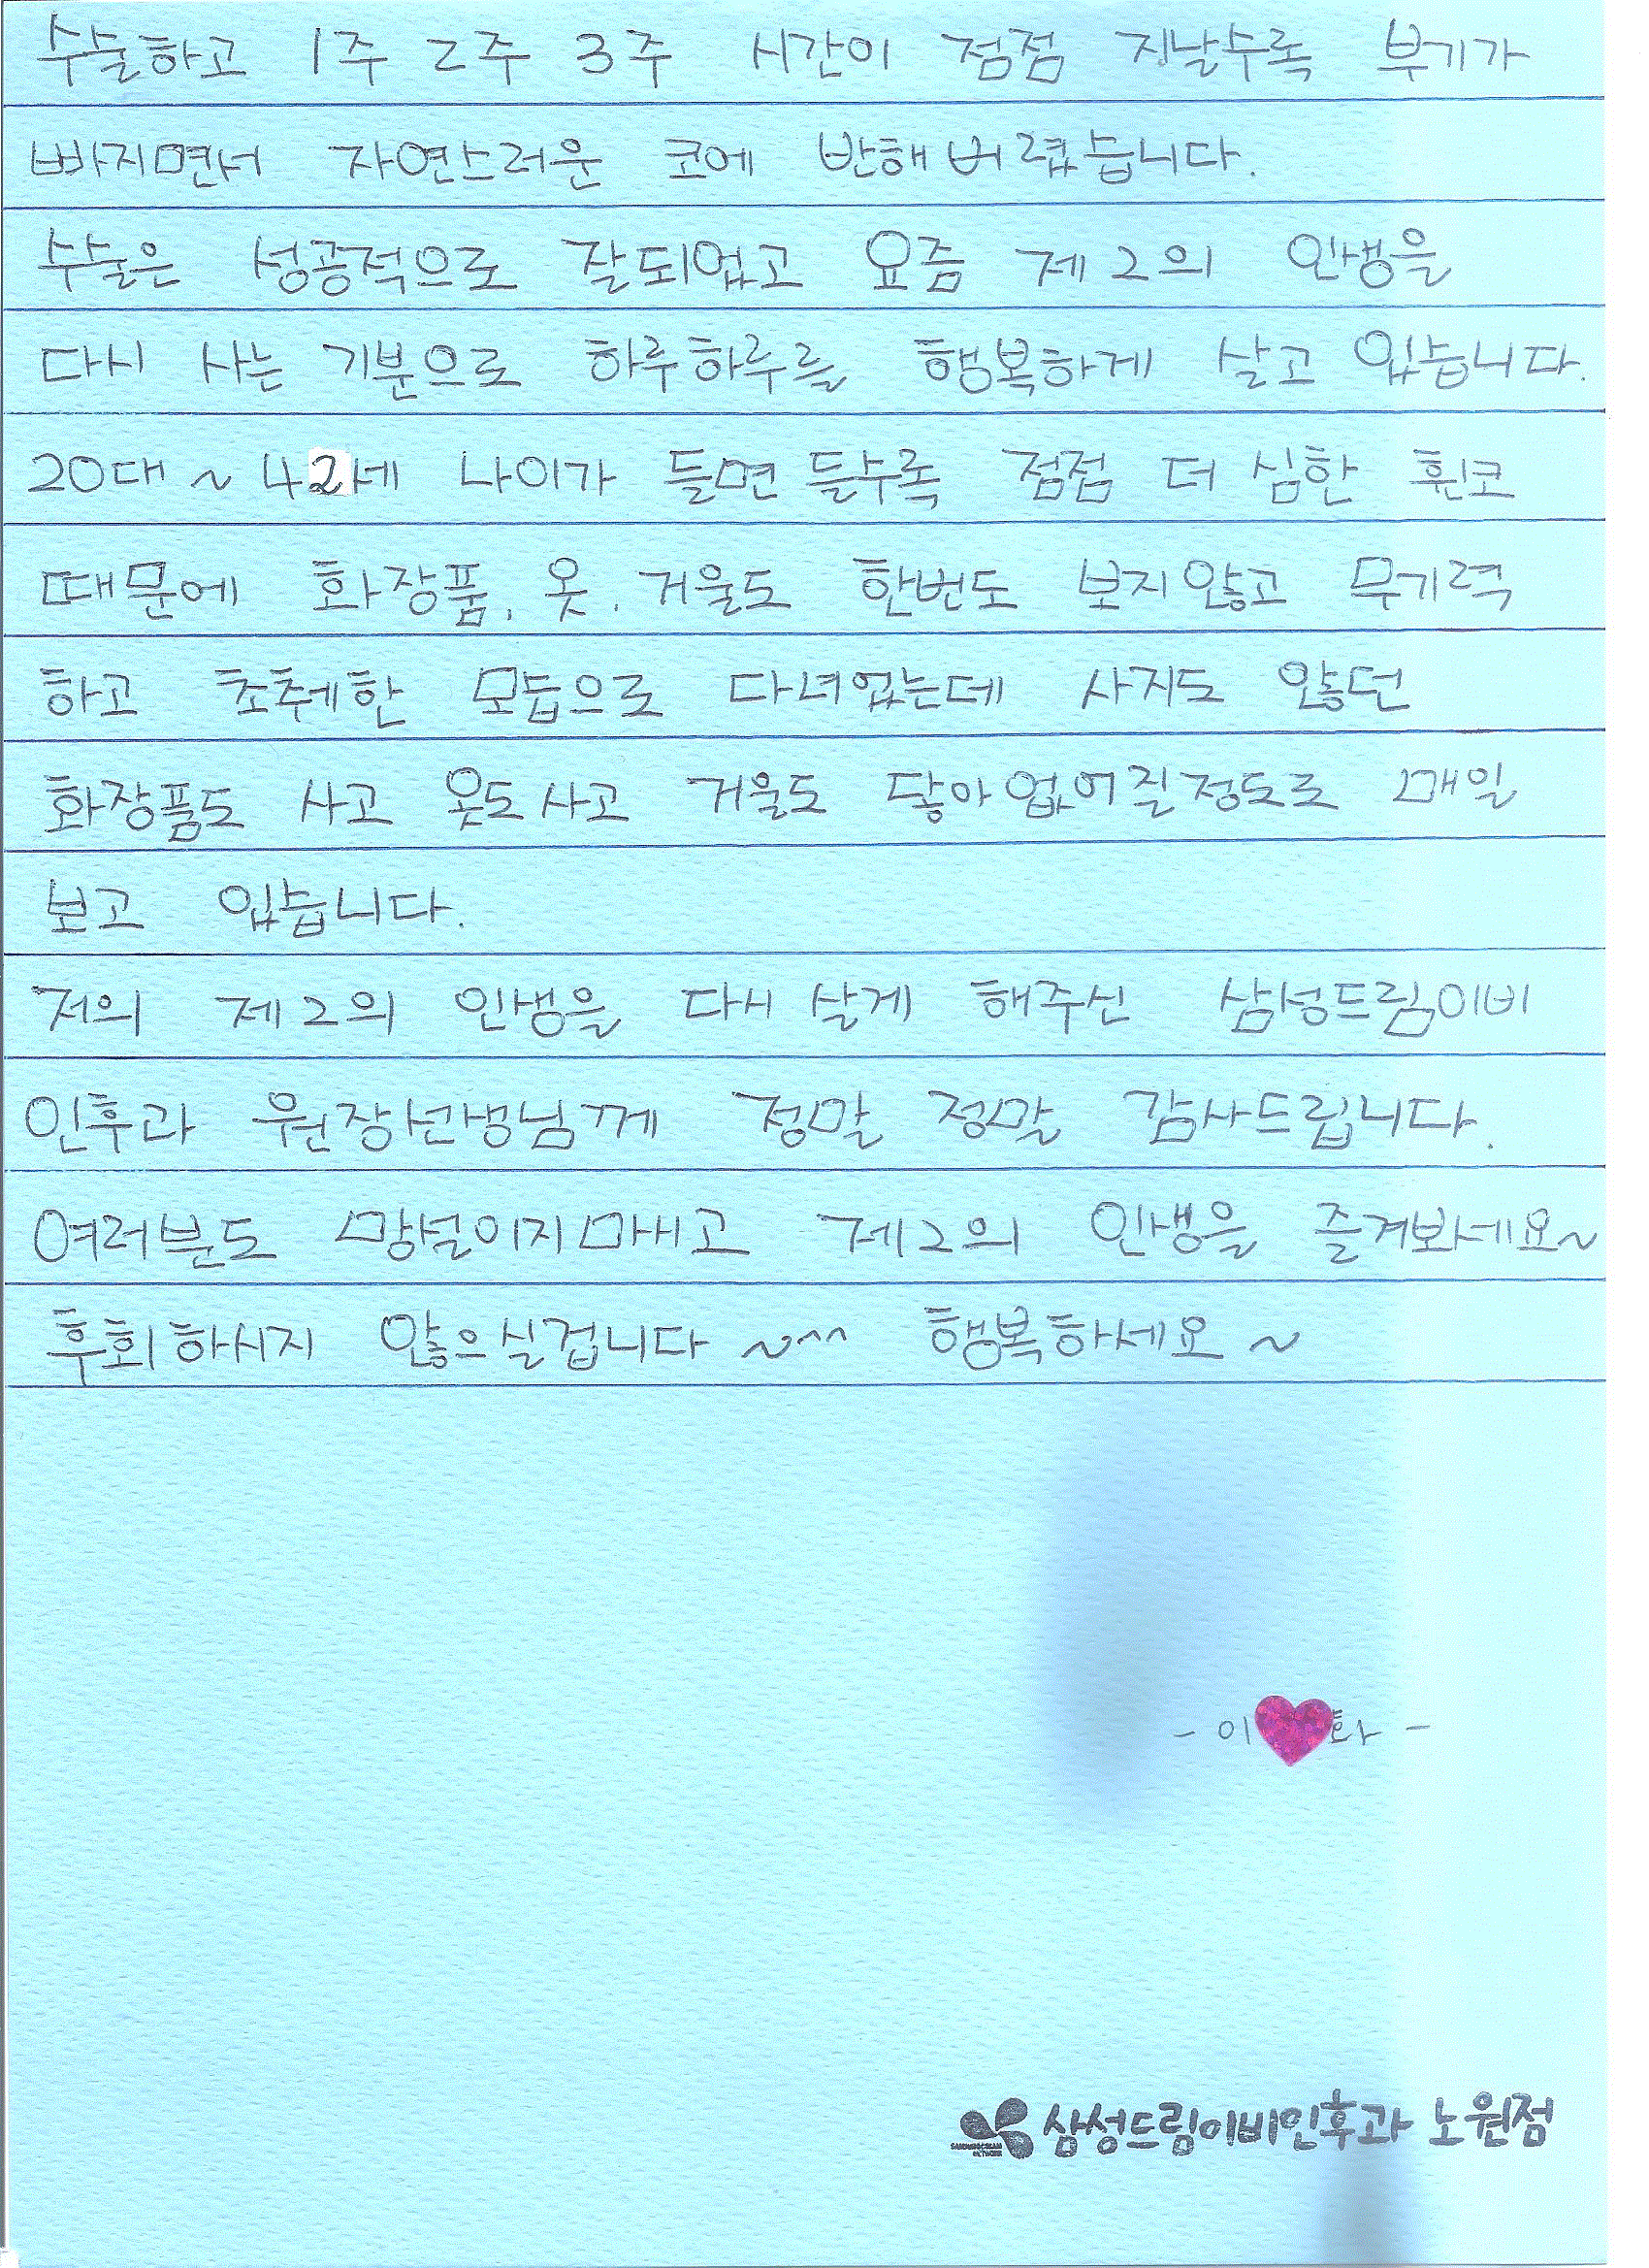 수술하고 1주 2주 3주 시간이 점점 지날수록 부기가
빠지면서 자연스러운 코에 반해버렸습니다.
수술은 성공적으로 잘되었고 요즘 제2의 인생을
다시 사는 기분으로 하루하루를 행복하게 살고 있습니다.
20대~42세 나이가 들면 들수록 점점 더 심한 휜코
때문에 화장품, 옷, 거울도 한번도 보지않고 무기력
하고 초췌한 모습으로 다녀었는데 사지도 않던
화장품도 사고 옷도사고 거울도 닳아없어질정도로 매일
보고 있습니다.
저의 제2의 인생을 다시살게 해주신 삼성드림이비
인후과 원장선생님께 정말 정말 감사드립니다.
여러분도 망설이지마시고 제2의 인생을 즐겨보세요~
후회하시지 않으실겁니다 ~^^ 행복하세요~
- 이 화 -
삼성드림이비인후과 노원점